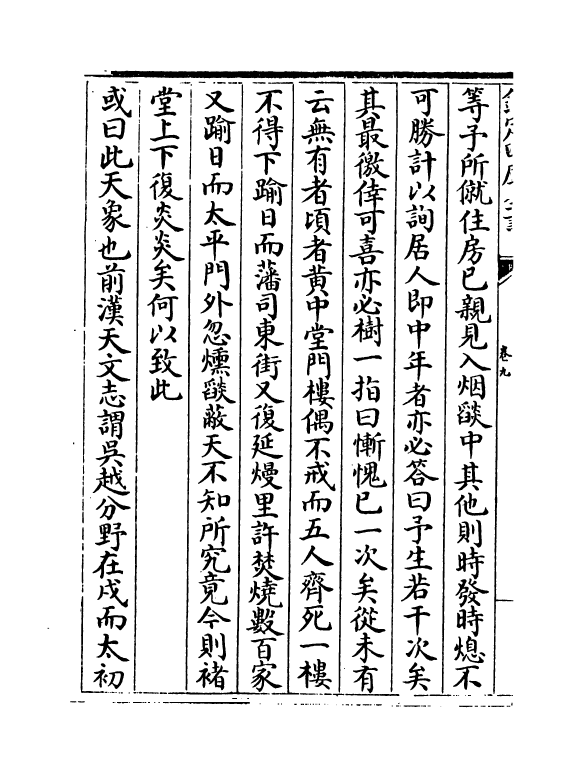 卷九
等予所僦住房已親見入烟燄中其他則時發時熄不
可勝計以詢居人即中年者亦必答曰予生若干次矣
其最徼倖可喜亦必樹一指曰慚愧已一次矣從未有
云無有者頃者黄中堂門樓偶不戒而五人齊死一樓
不得下踰日而藩司東街又復延熳里許焚燒數百家
又踰日而太平門外忽燻燄蔽天不知所究竟今則褚
堂上下復炎炎矣何以致此
或曰此天象也前漢天文志謂吳越分野在戌而太初